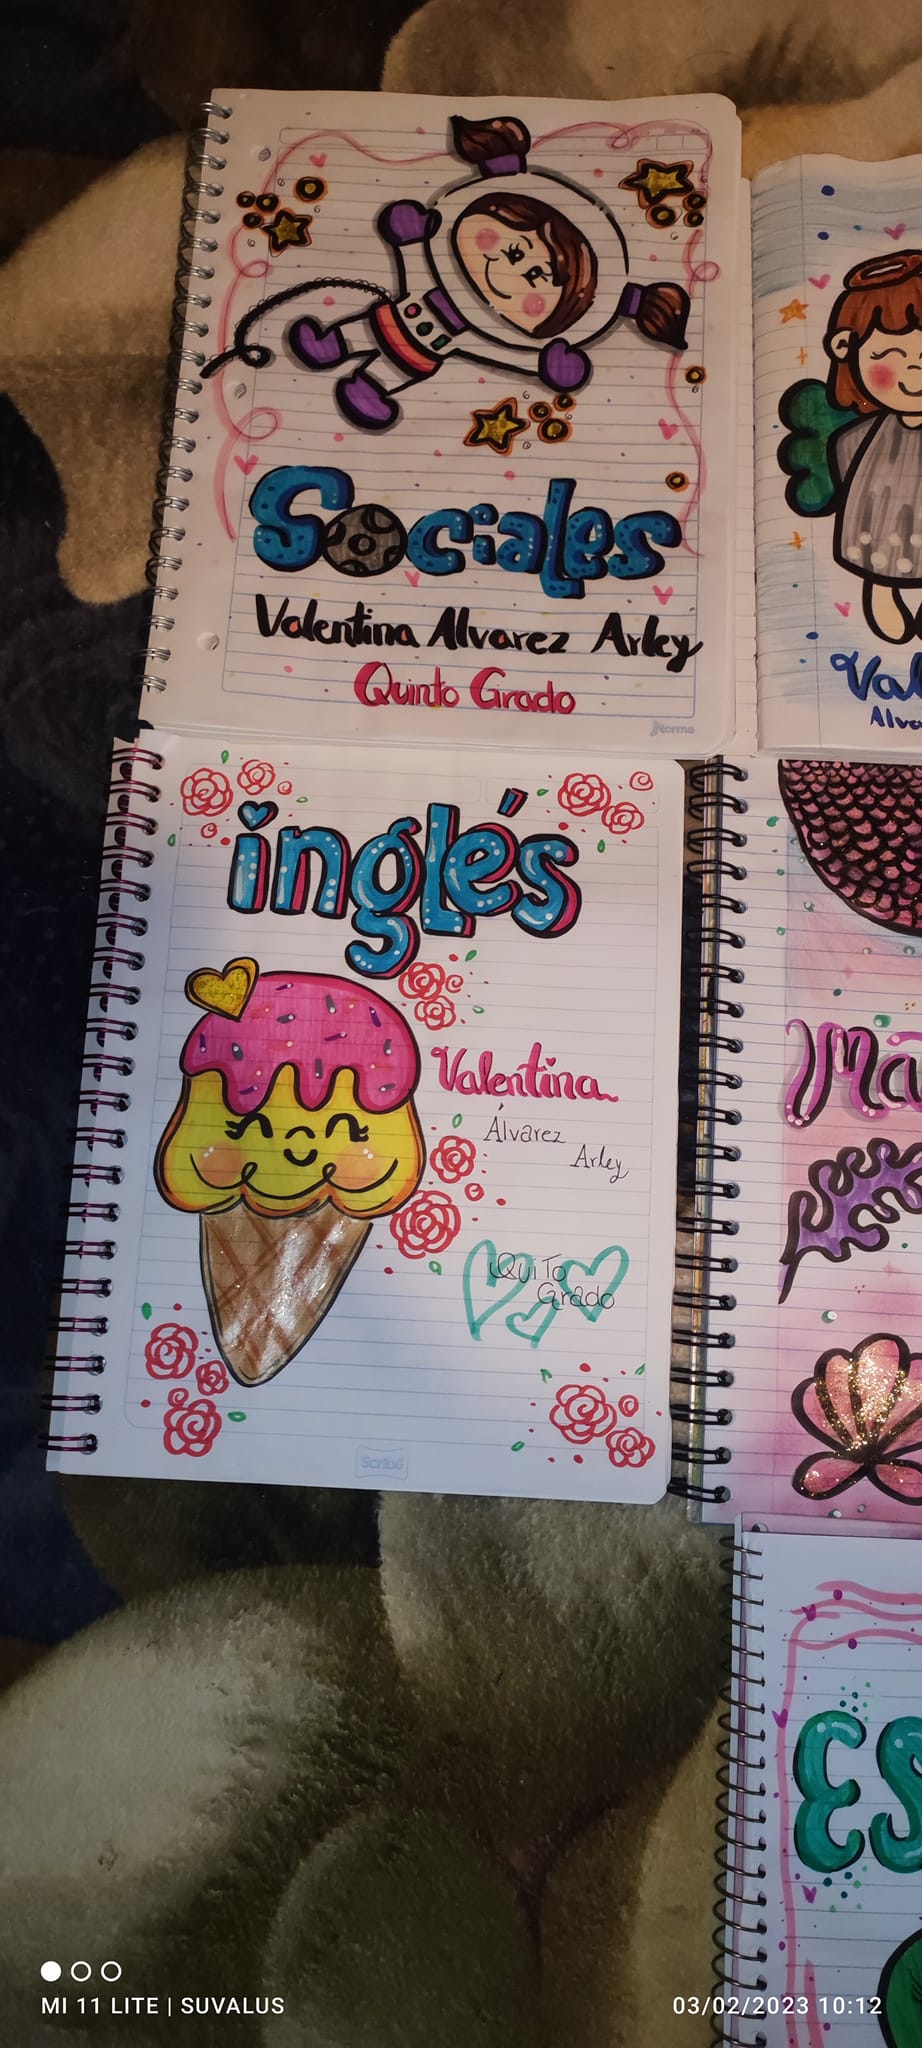 Sociales
Valentina Alvarez Arley
Quinto Grado
Norma
inglés
Valentina
Álvarez
Arley
QuiTo
Grado
Scribe
MI 11 LITE | SUVALUS
03/02/2023 10:12